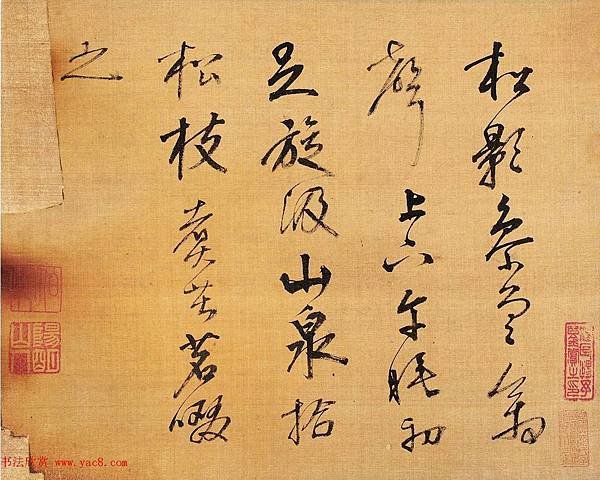 松影參差禽
聲上下午睡初
足旋汲山泉拾
松枝煮苦茗啜
之
书法欣赏 www.yac8.com